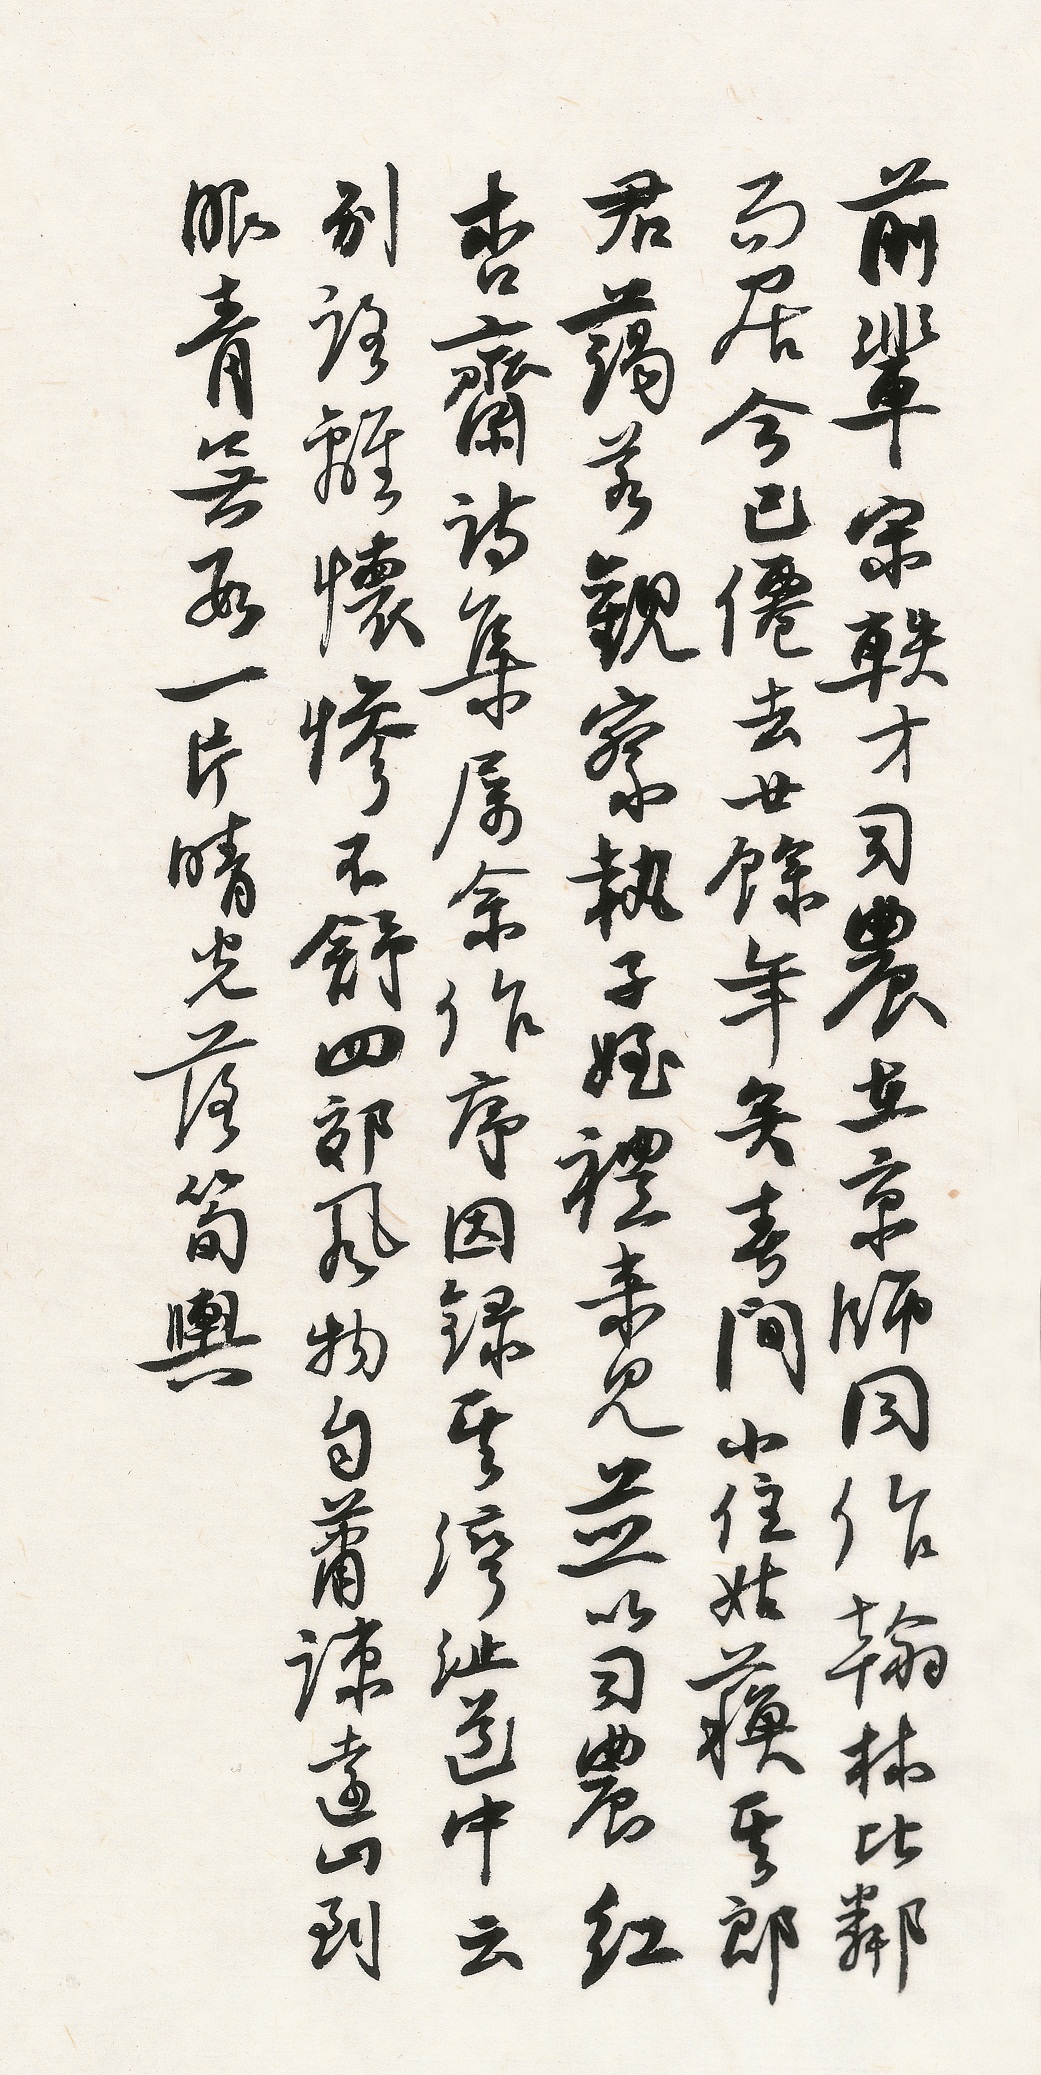 前輩宋軼才司農在京師同作翰林比鄰
而居今已僊去廿餘年矣春間小住姑蘇其郎
君藹若觀察執子姪禮來見並以司農紅
杏齋詩集屬余作序因錄其灣沚道中云
別路離懷慘不舒四郊風物自蕭疎遠山到
眼青無數一片晴光落筍輿